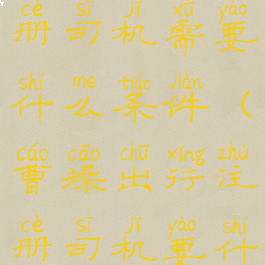 cè sī jī xū yào
册司机需要
shí me tiáo jiàn
什么条件（
cáo cāo chū xíng zhù
曹操出行注
cè sī jī yào shí
册司机要什